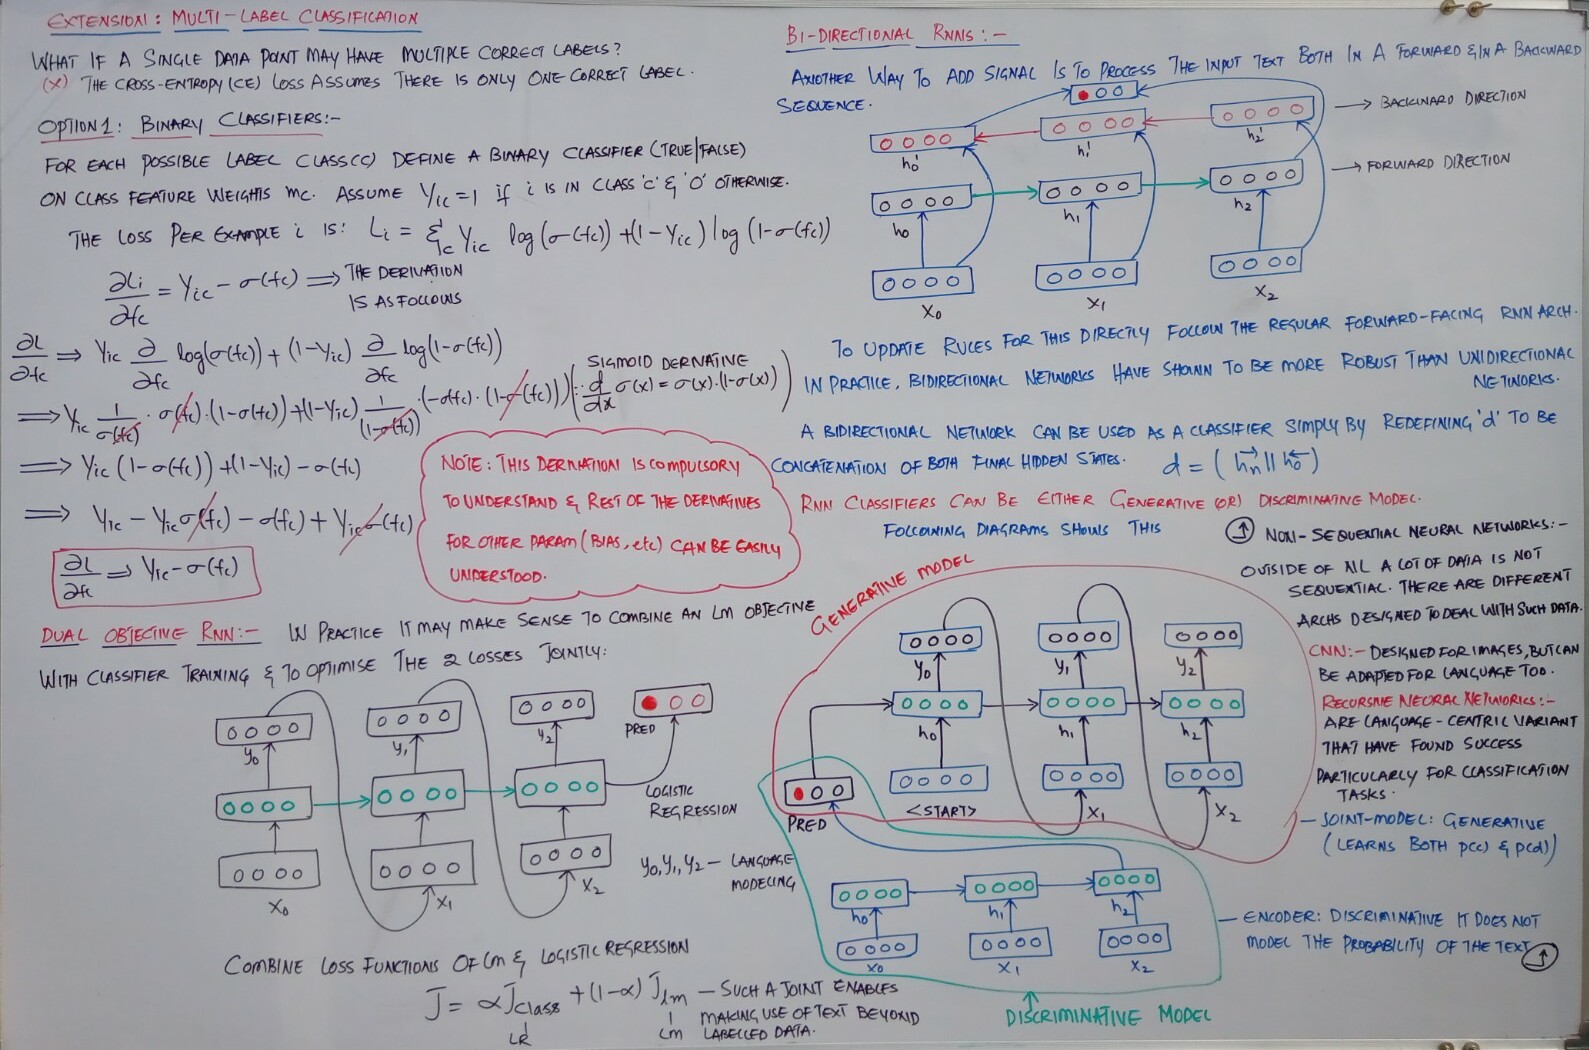 EXTENSION: MULTI-LABEL CLASSIFICATION
WHAT IF A SINGLE DATA POINT MAY HAVE MULTIPLE CORRECT LABELS?
(X) THE CROSS-ENTROPY (CE) LOSS ASSUMES THERE IS ONLY ONE CORRECT LABEL.
OPTION 1: BINARY CLASSIFIERS:-
FOR EACH POSSIBLE LABEL CLASS(C) DEFINE A BINARY CLASSIFIER (TRUE|FALSE)
ON CLASS FEATURE WEIGHTS mc. ASSUME Yic=1 if i IS IN CLASS 'C' & '0' OTHERWISE.
THE LOSS PER EXAMPLE i IS: Li = Σc Yic log(σ(fc)) + (1-Yic) log(1-σ(fc))
∂Li/∂fc = Yic - σ(fc) ⟹ THE DERIVATION
IS AS FOLLOWS
∂L/∂fc ⟹ Yic ∂/∂fc log(σ(fc)) + (1-Yic) ∂/∂fc log(1-σ(fc))
⟹ Yic 1/σ(fc) · σ(fc)·(1-σ(fc)) + (1-Yic) 1/(1-σ(fc)) ·(-σ(fc)·(1-σ(fc)))
(SIGMOID DERIVATIVE
∵ d/dx σ(x) = σ(x)·(1-σ(x)))
⟹ Yic (1-σ(fc)) + (1-Yic) - σ(fc)
⟹ Yic - Yicσ(fc) - σ(fc) + Yicσ(fc)
∂L/∂fc ⟹ Yic - σ(fc)
NOTE: THIS DERIVATION IS COMPULSORY
TO UNDERSTAND & REST OF THE DERIVATIVES
FOR OTHER PARAM (BIAS, etc) CAN BE EASILY
UNDERSTOOD.
DUAL OBJECTIVE RNN:- IN PRACTICE IT MAY MAKE SENSE TO COMBINE AN LM OBJECTIVE
WITH CLASSIFIER TRAINING & TO OPTIMISE THE 2 LOSSES JOINTLY:
y0
y1
y2
PRED
LOGISTIC
REGRESSION
X0
X1
X2
y0, y1, y2 - LANGUAGE
MODELING
COMBINE LOSS FUNCTIONS OF LM & LOGISTIC REGRESSION
J = αJclass + (1-α) Jlm - SUCH A JOINT ENABLES
MAKING USE OF TEXT BEYOND
LABELLED DATA.
LR
LM
BI-DIRECTIONAL RNNS:-
ANOTHER WAY TO ADD SIGNAL IS TO PROCESS THE INPUT TEXT BOTH IN A FORWARD & IN A BACKWARD
SEQUENCE.
BACKWARD DIRECTION
h0'
h1'
h2'
FORWARD DIRECTION
h0
h1
h2
X0
X1
X2
TO UPDATE RULES FOR THIS DIRECTLY FOLLOW THE REGULAR FORWARD-FACING RNN ARCH.
IN PRACTICE, BIDIRECTIONAL NETWORKS HAVE SHOWN TO BE MORE ROBUST THAN UNIDIRECTIONAL
NETWORKS.
A BIDIRECTIONAL NETWORK CAN BE USED AS A CLASSIFIER SIMPLY BY REDEFINING 'd' TO BE
CONCATENATION OF BOTH FINAL HIDDEN STATES. d = (h⃗n || h⃖0)
RNN CLASSIFIERS CAN BE EITHER GENERATIVE (OR) DISCRIMINATIVE MODEL.
FOLLOWING DIAGRAMS SHOWS THIS
GENERATIVE MODEL
y0
y1
y2
h0
h1
h2
PRED
<START>
X1
X2
h0
h1
h2
X0
X1
X2
DISCRIMINATIVE MODEL
NON-SEQUENTIAL NEURAL NETWORKS:-
OUTSIDE OF NLL A LOT OF DATA IS NOT
SEQUENTIAL. THERE ARE DIFFERENT
ARCHS DESIGNED TO DEAL WITH SUCH DATA.
CNN:- DESIGNED FOR IMAGES, BUT CAN
BE ADAPTED FOR LANGUAGE TOO.
RECURSIVE NEURAL NETWORKS:-
ARE LANGUAGE-CENTRIC VARIANT
THAT HAVE FOUND SUCCESS
PARTICULARLY FOR CLASSIFICATION
TASKS.
- JOINT-MODEL: GENERATIVE
(LEARNS BOTH p(c) & p(d))
- ENCODER: DISCRIMINATIVE IT DOES NOT
MODEL THE PROBABILITY OF THE TEXT